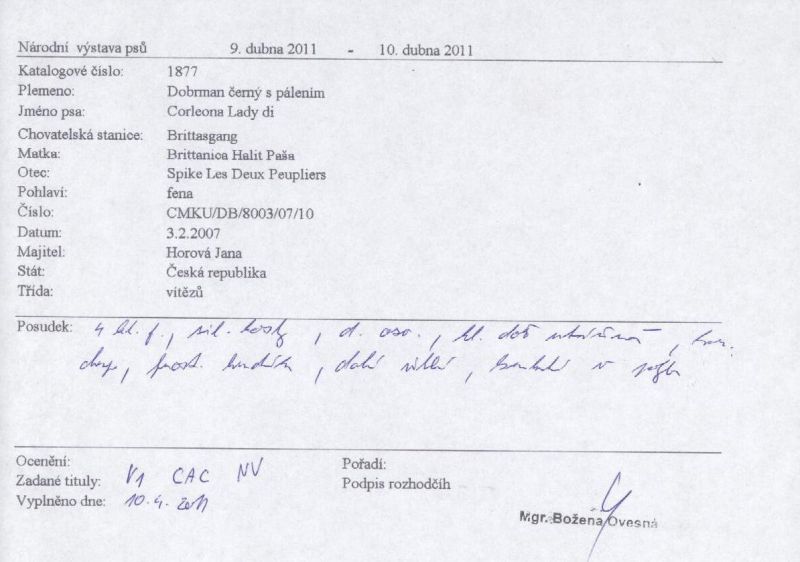 Národní výstava psů 9. dubna 2011 - 10. dubna 2011
Katalogové číslo: 1877
Plemeno: Dobrman černý s pálením
Jméno psa: Corleona Lady di
Chovatelská stanice: Brittasgang
Matka: Brittanica Halit Paša
Otec: Spike Les Deux Peupliers
Pohlaví: fena
Číslo: CMKU/DB/8003/07/10
Datum: 3.2.2007
Majitel: Horová Jana
Stát: Česká republika
Třída: vítězů
Posudek: 4 sil. kosty
prost. hrudník
Ocenění:
Pořadí:
Zadané tituly: V1 CAC NV
Podpis rozhodčíh
Vyplněno dne: 10.4.2011
Mgr. Božena Ovesná